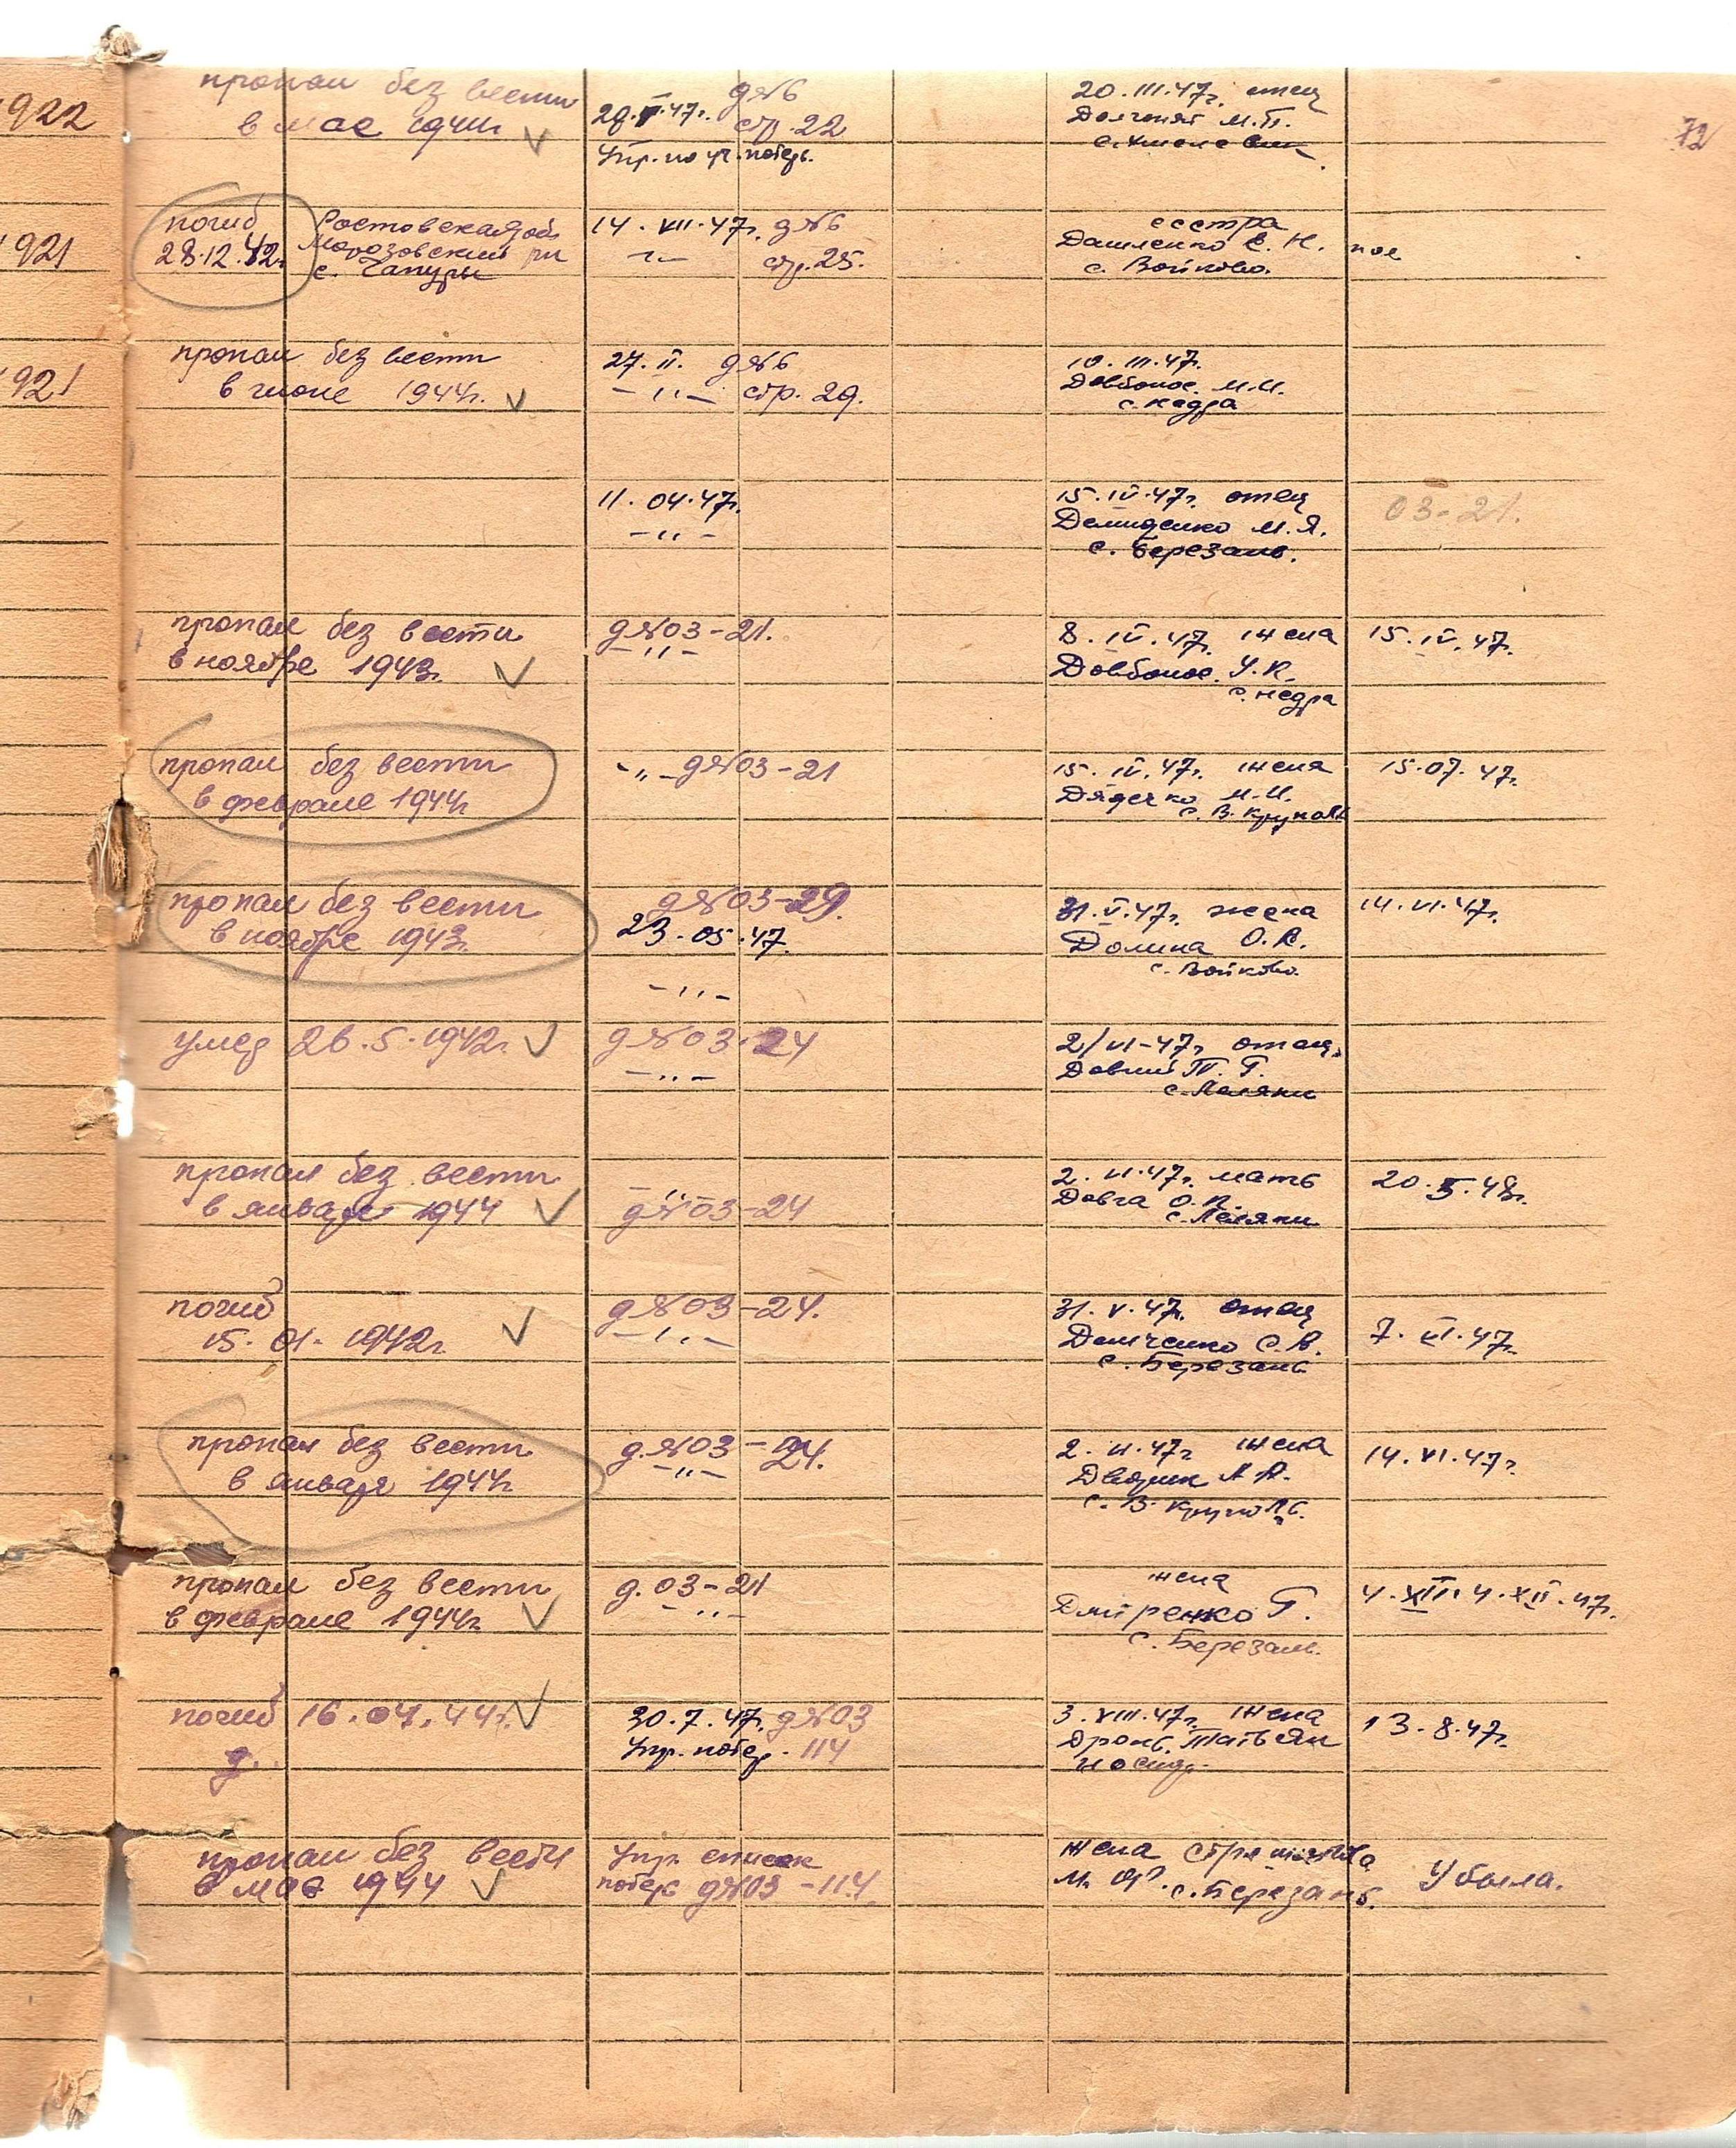 72
922
пропал без вести
в мае 1944г.
29. V. 47г. д №6
стр. 22
Упр. по уч. потерь.
20. III. 47г. отец
М. П.
921
погиб
28.12.42г.
Ростовская обл.
Морозовский рн
с. Чапуры
14. VII. 47г. д №6
-"- стр. 25.
сестра
Дашленко Е. Н.
с. Войково.
921
пропал без вести
в июне 1944г.
27. II. д №6
-"- стр. 29.
10. III. 47г.
Довбонос. М. И.
с. Недра
11. 04. 47г.
-"-
15. IV. 47г. отец
Демиденко М. Я.
с. Березань.
03-21.
пропал без вести
в ноябре 1943г.
д №03-21.
-"-
8. IV. 47г. жена
Довбонос. У. К.
с. Недра
15. IV. 47г.
пропал без вести
в феврале 1944г
-"- д №03-21
15. IV. 47г. жена
Дядечко М. И.
с. В. Круполь
15. 07. 47г.
пропал без вести
в ноябре 1943г.
д №03-29.
23. 05. 47.
-"-
31. V. 47г. жена
Долина О. К.
с. Войково.
14. VI. 47г.
умер 26. 5. 1942г.
д №03-24
-"-
2/VI-47г. отец.
Довгий Т. Г.
с. Леляки
пропал без вести
в январе 1944
-"-
д №03-24
2. VI. 47г. мать
Довга О. П.
с. Леляки
20. 5. 48г.
погиб
15. 01. 1942г.
д №03-24.
-"-
31. V. 47г. отец
Демченко С. А.
с. Березань
7. VI. 47г.
пропал без вести
в январе 1944г.
д. №03-24.
-"-
2. VI. 47г. жена
А. А.
с. В. Круполь.
14. VI. 47г.
пропал без вести
в феврале 1944г.
д. 03-21
-"-
жена
Дмитренко Г.
с. Березань.
4. XII. 4. XII. 47г.
погиб 16. 04. 44г.
30. 7. 47г. д №03
Упр. потер. 114
3. VIII. 47г. жена
Дронь. Татьян
13. 8. 47г.
пропал без вести
в мае 1944
Упр. список
потерь д №03-114.
жена
М. Ф. с. Березань.
Убыла.